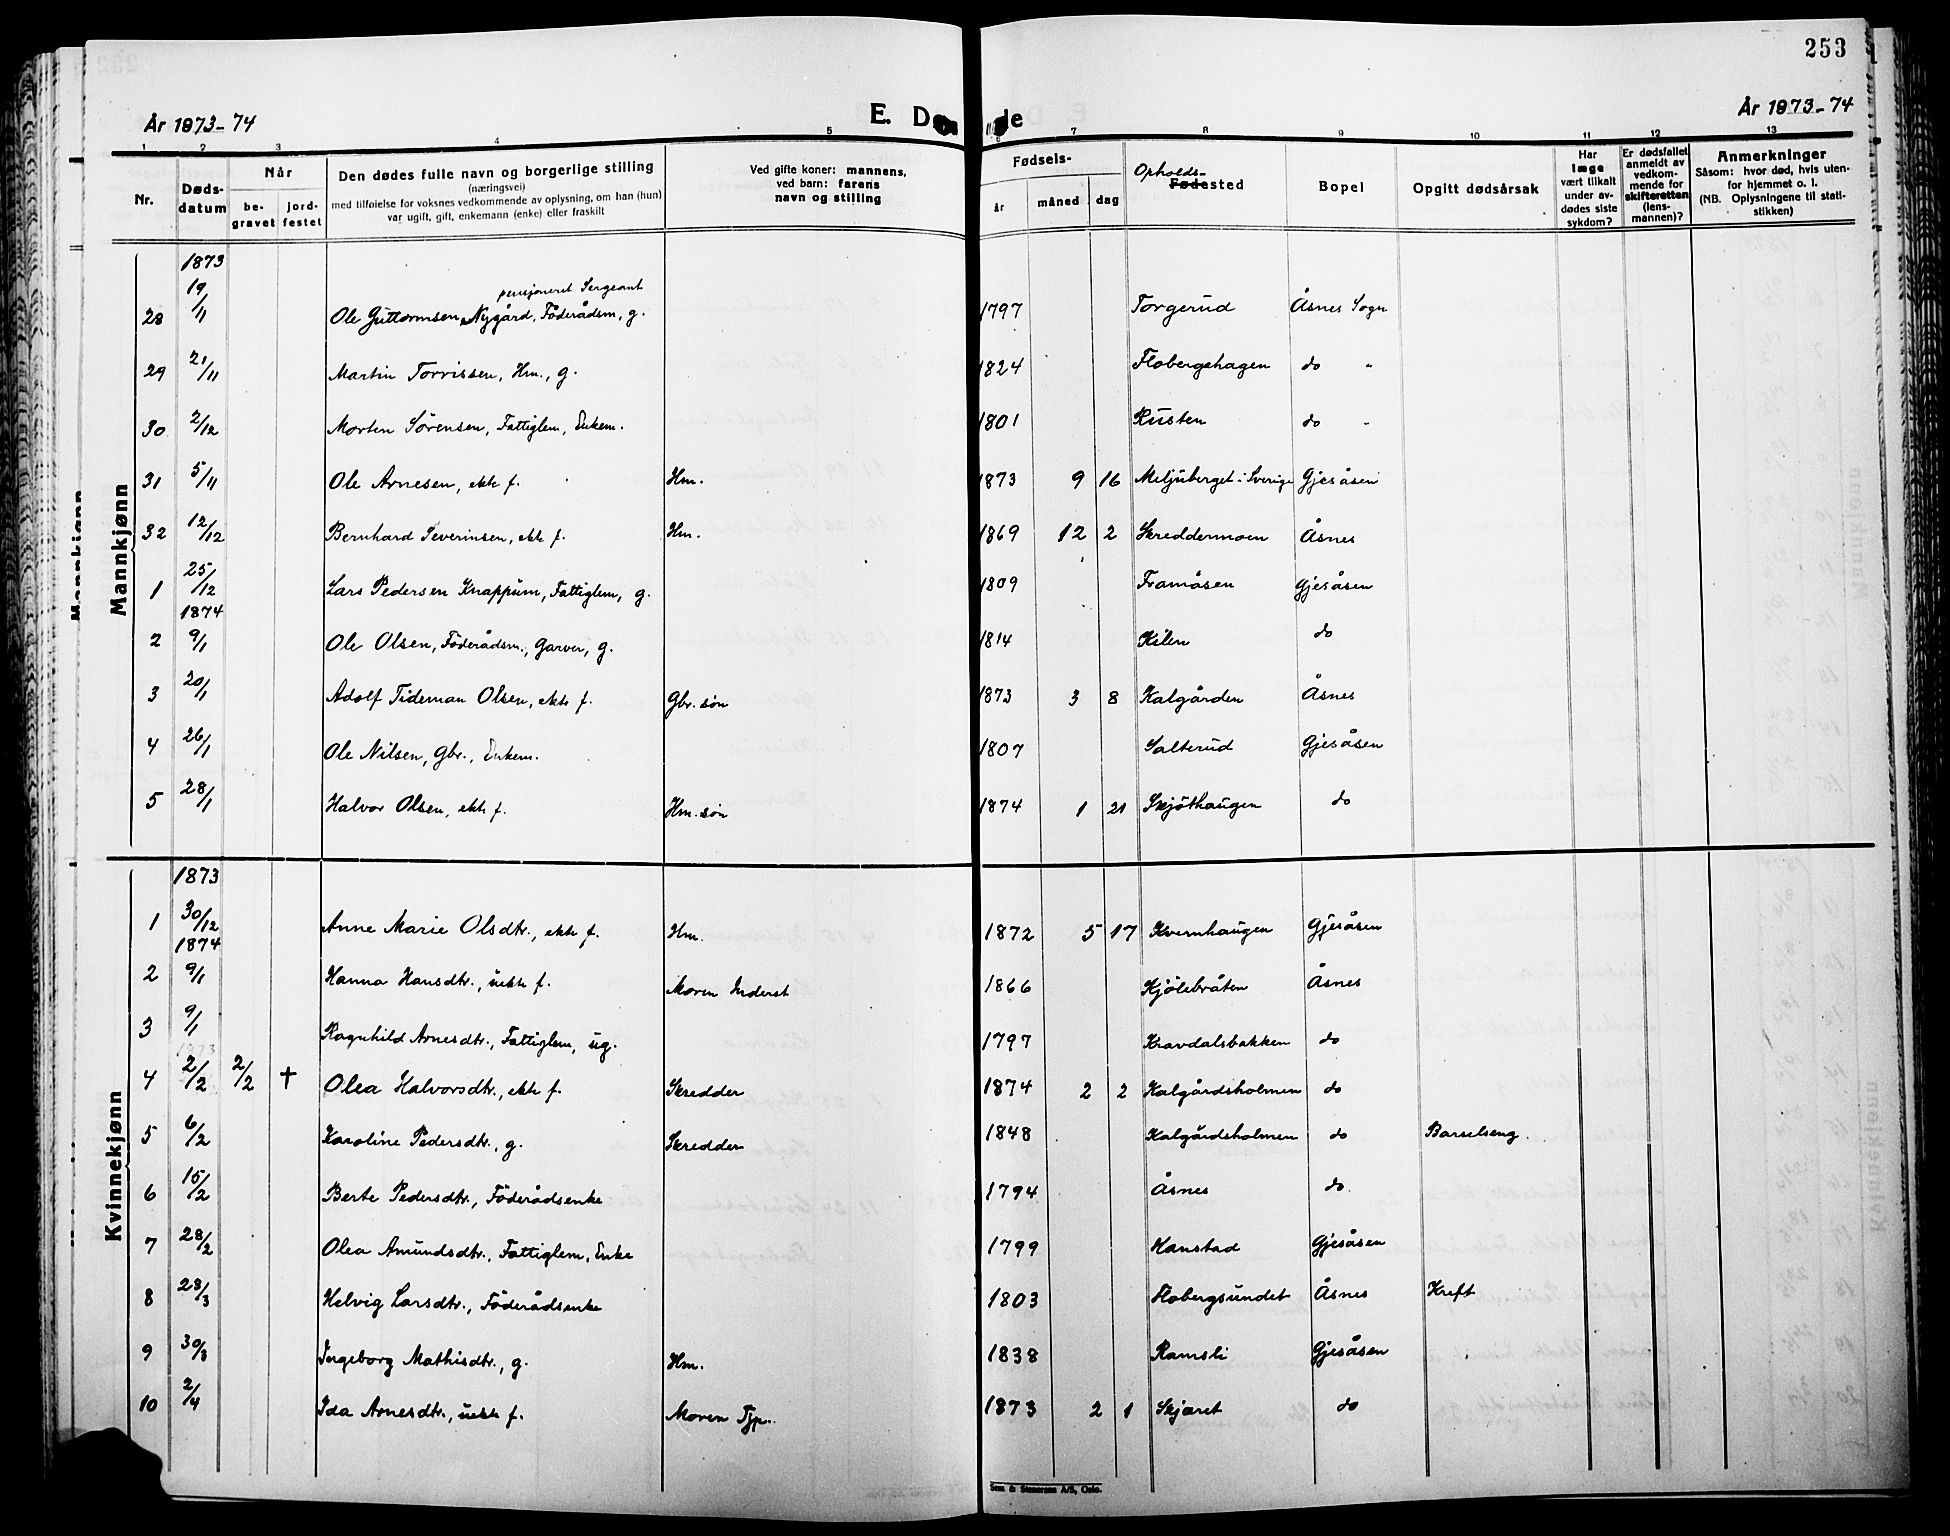 253
År 1873-74
E. Dø
de
År 1873-74
1 2 3 4 5 6 7 8 9 10 11 12 13
Nr.
Døds-datum
Når
be-gravet
jord-festet
Den dødes fulle navn og borgerlige stilling
(næringsvei)
med tilføielse for voksnes vedkommende av oplysning, om han (hun)
var ugift, gift, enkemann (enke) eller fraskilt
Ved gifte koner: mannens,
ved barn: farens
navn og stilling
Fødsels-
år måned dag
Opholds-
Fødested
Bopel
Opgitt dødsårsak
Har læge vært tilkalt under av-dødes siste sykdom?
Er dødsfallet anmeldt av vedkom-mende for skifteretten (lens-mannen)?
Anmerkninger
Såsom: hvor død, hvis uten-for hjemmet o. l.
(NB. Oplysningene til stati-stikken)
Mannkjønn
1873
pensjoneret Sergeant
28 19/11 Ole Guttormsen Nygård, Föderådsm, g. 1797 Torgerud Åsnes Sogn
29 21/11 Martin Torvissen, Hm., g. 1824 Flobergshagen do "
30 2/12 Morten Sörensen, Fattiglem, Enkem. 1801 Rusten do "
31 5/11 Ole Arnesen, ekte f. Hm. 1873 9 16 Meljuberget i Sverige Gjesåsen
32 12/12 Bernhard Severinsen, ekte f. Hm. 1869 12 2 Skreddermoen Åsnes
1 25/12 Lars Pedersen Knappum, Fattiglem, g. 1809 Framåsen Gjesåsen
1874
2 9/1 Ole Olsen, Föderådsm., Garver, g. 1814 Kilen do
3 20/1 Adolf Tideman Olsen, ekte f. Gbr. søn 1873 3 8 Kalgården Åsnes
4 26/1 Ole Nilsen, Gbr., Enkem. 1807 Salterud Gjesåsen
5 28/1 Halvor Olsen, ekte f. Hm. søn 1874 1 21 Skjöthaugen do
Kvinnekjønn
1873
1 30/12 Anne Marie Olsdtr., ekte f. Hm. 1872 5 17 Kvernhaugen Gjesåsen
1874
2 9/1 Hanna Hansdtr., uekte f. Moren Inderst 1866 Kjölebråten Åsnes
3 9/1 Ragnhild Arnesdtr., Fattiglem, ug. 1797 Kravdalsbakken do
4 2/2 2/2 † Olea Halvorsdtr., ekte f. Skredder 1874 2 2 Kalgårdsholmen do
5 6/2 Karoline Pedersdtr., g. Skredder 1848 Kalgårdsholmen do Barselseng.
6 15/2 Berte Pedersdtr., Föderådsenke 1794 Åsnes do.
7 28/2 Olea Amundsdtr., Fattiglem, Enke 1799 Hanstad Gjesåsen
8 28/3 Helvig Larsdtr., Föderådsenke 1803 Flobergsundet Åsnes Kreft
9 30/3 Ingeborg Mathisdtr., g. Hm. 1838 Ramsli Gjesåsen
10 2/4 Ida Arnesdtr., uekte f. Moren Tjp.. 1873 2 1 Skjæret do
Sem & Stenersen A/S, Oslo.